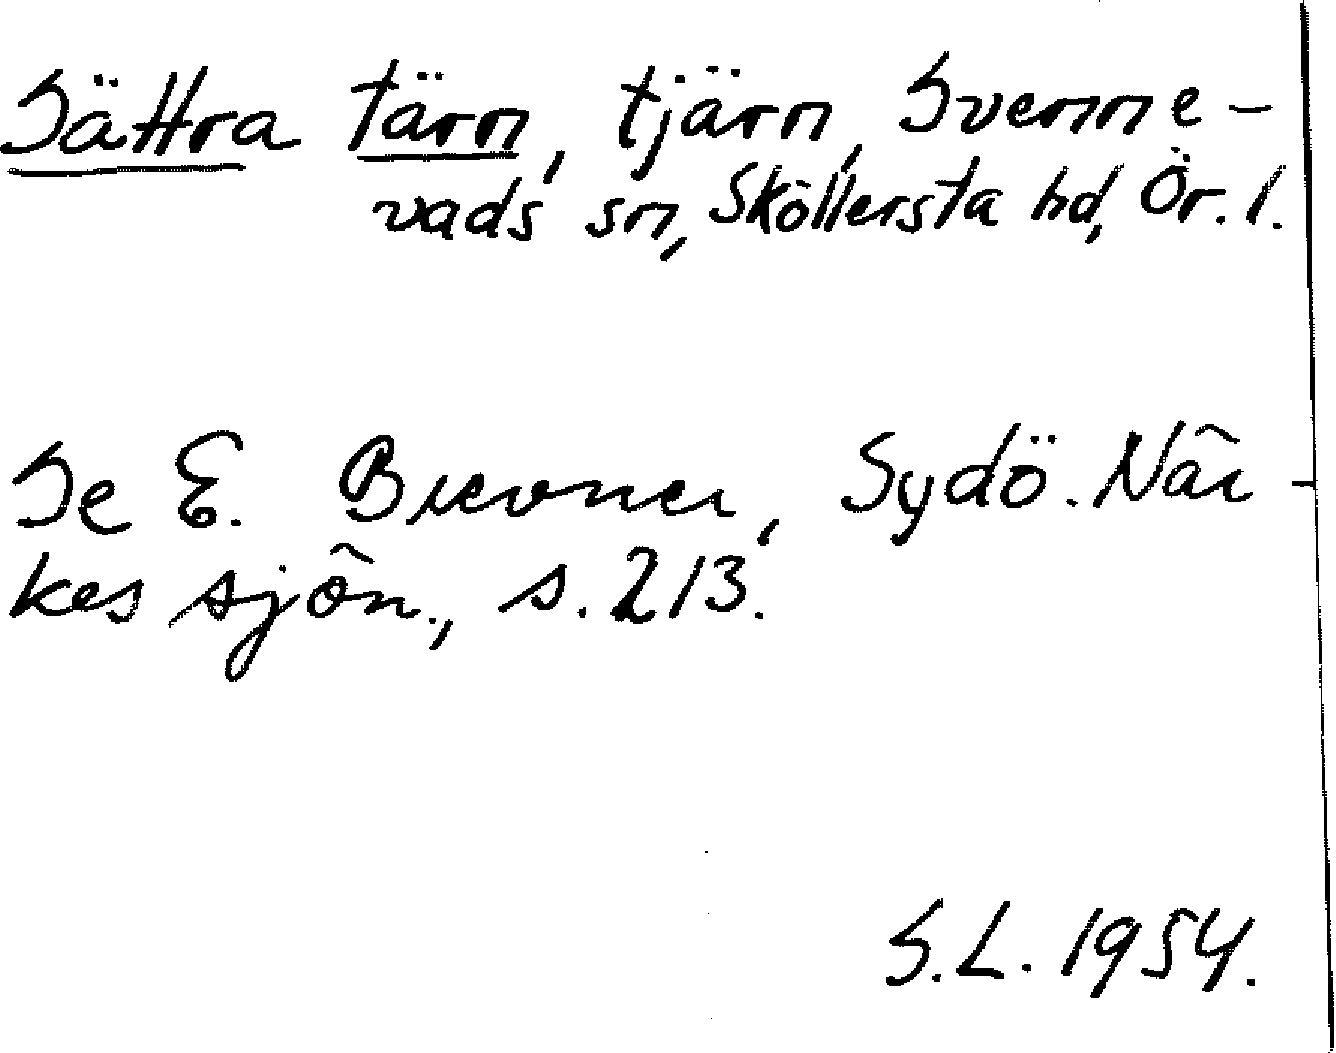 Sättra tärn, tjärn, Svenne-
vads sn, Sköllersta hd, Ör. l.
Se E. Brevner, Sydö. När-
kes sjön., s. 213.
S.L. 1954.